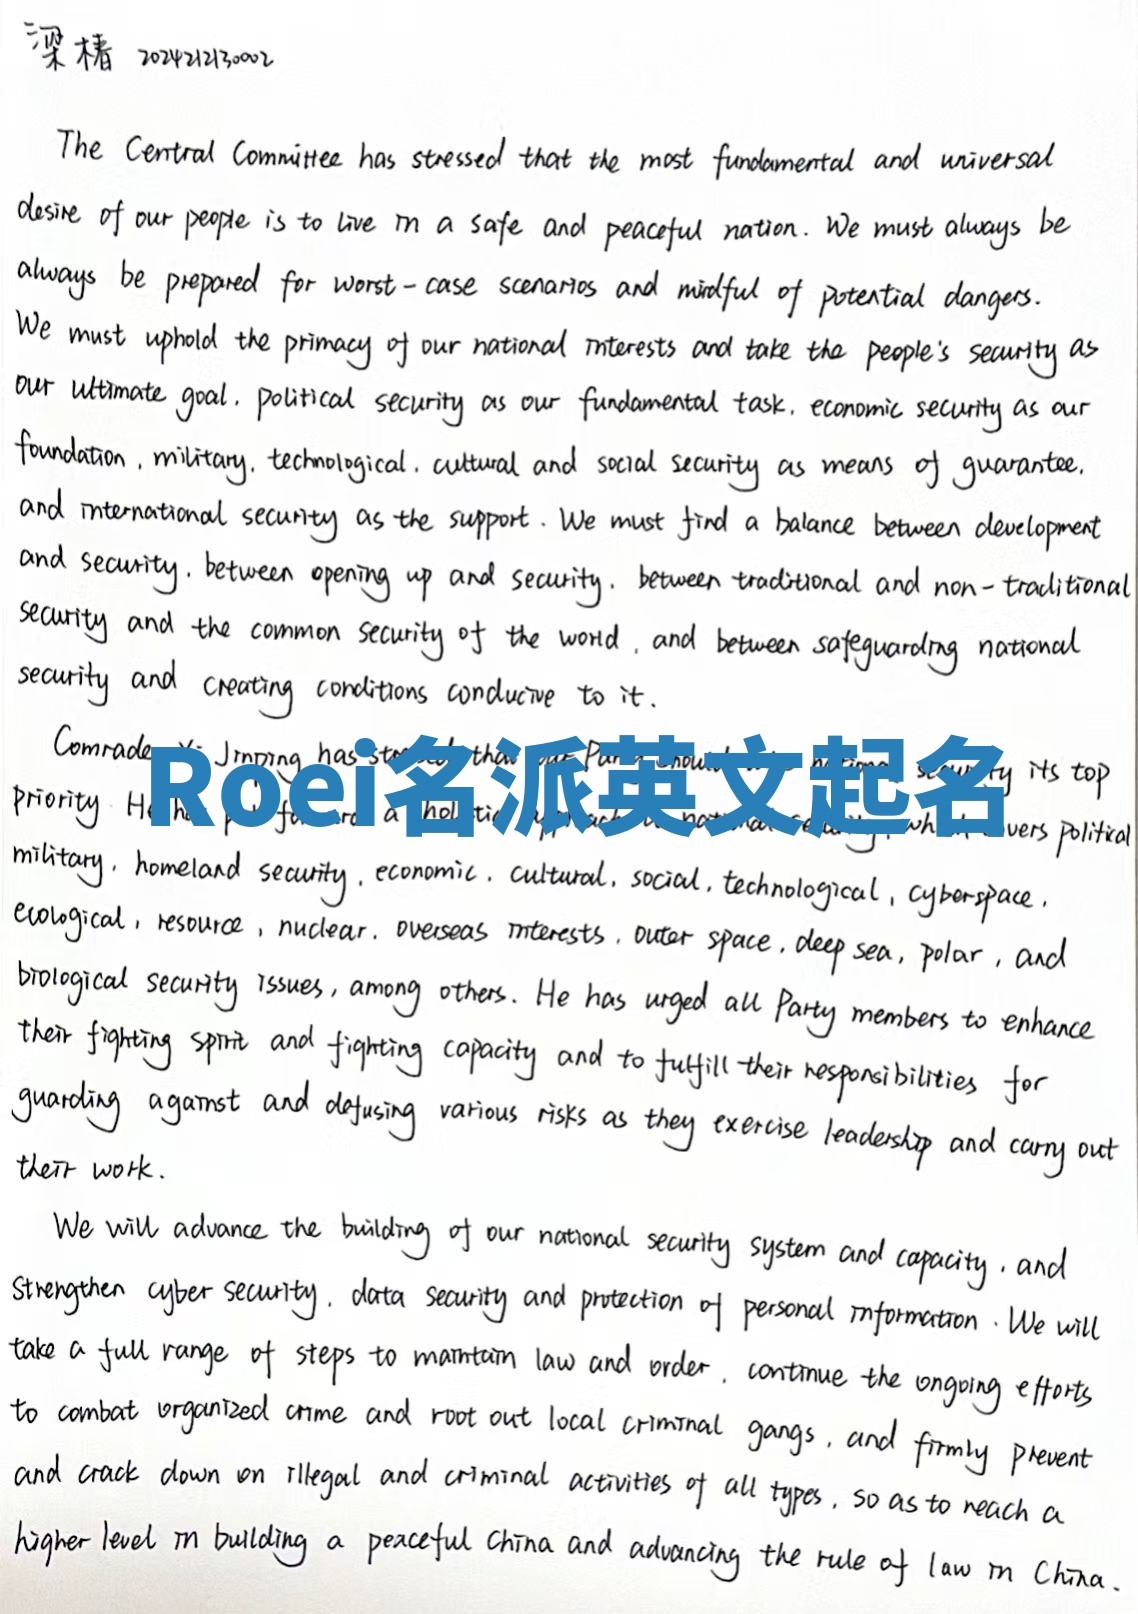 梁椿 2024212130002
The Central Committee has stressed that the most fundamental and universal
desire of our people is to live in a safe and peaceful nation. We must always be
always be prepared for worst-case scenarios and mindful of potential dangers.
We must uphold the primacy of our national interests and take the people's security as
our ultimate goal, political security as our fundamental task, economic security as our
foundation, military, technological, cultural and social security as means of guarantee,
and international security as the support. We must find a balance between development
and security, between opening up and security, between traditional and non-traditional
security and the common security of the world, and between safeguarding national
security and creating conditions conducive to it.
Comrade Xi Jinping has stressed that our Party should national security its top
Roei名派英文起名
priority. He has put forward a holistic approach to national security, which covers political
military, homeland security, economic, cultural, social, technological, cyberspace,
ecological, resource, nuclear, overseas interests, outer space, deep sea, polar, and
biological security issues, among others. He has urged all Party members to enhance
their fighting spirit and fighting capacity and to fulfill their responsibilities for
guarding against and defusing various risks as they exercise leadership and carry out
their work.
We will advance the building of our national security system and capacity, and
strengthen cyber security, data security and protection of personal information. We will
take a full range of steps to maintain law and order, continue the ongoing efforts
to combat organized crime and root out local criminal gangs, and firmly prevent
and crack down on illegal and criminal activities of all types, so as to reach a
higher level in building a peaceful China and advancing the rule of law in China.